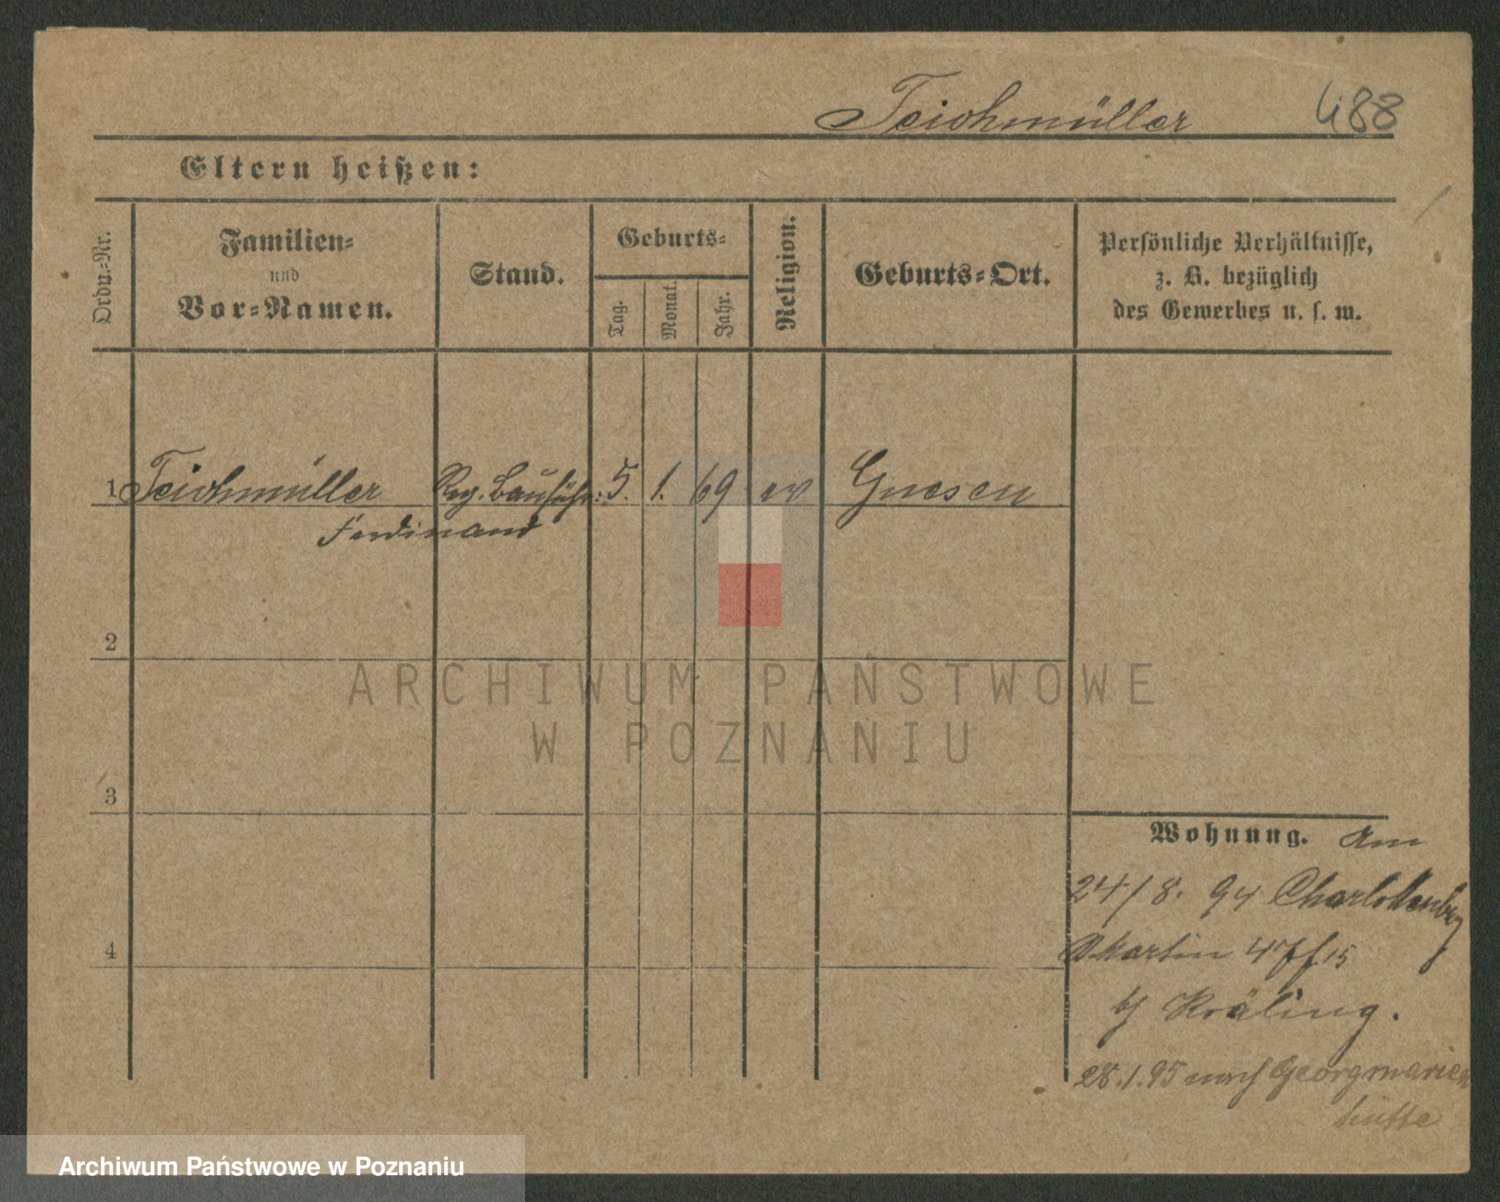 Teichmüller 488
Eltern heißen:
Ordn.=Nr.
Familien=
und
Vor=Namen.
Stand.
Geburts=
Tag.
Monat.
Jahr.
Religion.
Geburts=Ort.
Persönliche Verhältnisse,
z. B. bezüglich
des Gewerbes u. s. w.
1 Teichmüller Reg. Bauführ: 5. 1. 69 ev Gnesen
Ferdinand
2
3
4
Wohnung. Am
24/8. 94 Charlottenbg
Martin 47 15
b/ Kräling.
28.1.95 nach Georgmarien
hütte
ARCHIWUM PAŃSTWOWE
W POZNANIU
Archiwum Państwowe w Poznaniu